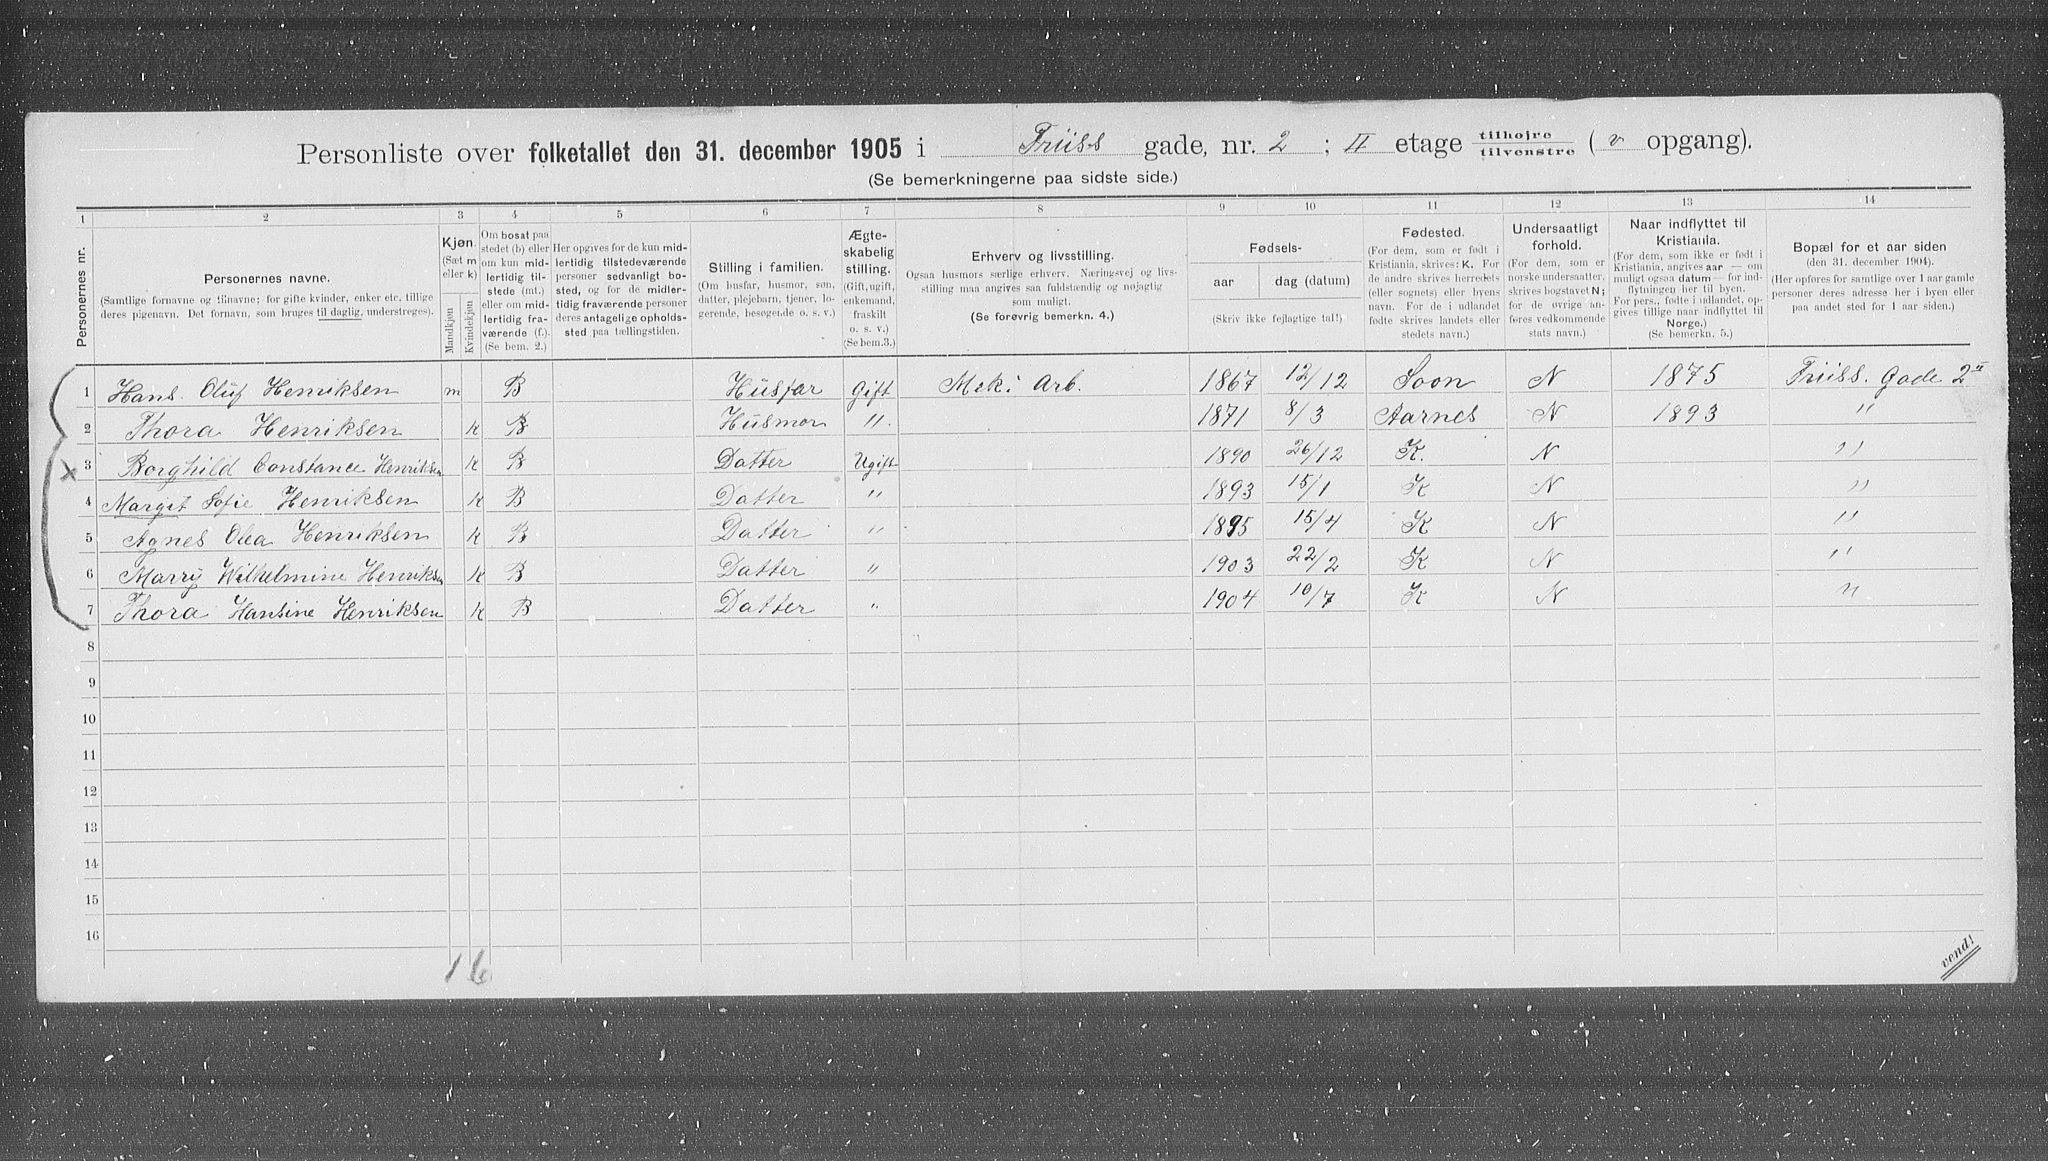 Personliste over folketallet den 31. december 1905 i Friiss gade, nr. 2 ; II etage tilhøjre tilvenstre ( v opgang).
(Se bemerkningerne paa sidste side.)
1 2 3 4 5 6 7 8 9 10 11 12 13 14
Personernes nr.
Personernes navne.
(Samtlige fornavne og tilnavne; for gifte kvinder, enker etc. tillige
deres pigenavn. Det fornavn, som bruges til daglig, understreges).
Kjøn.
(Sæt m
eller k)
Mandkjøn
Kvindekjøn
Om bosat paa
stedet (b) eller
om kun mid-
lertidig til-
stede (mt.)
eller om mid-
lertidig fra-
værende (f.).
(Se bem. 2.)
Her opgives for de kun mid-
lertidig tilstedeværende
personer sedvanligt bo-
sted, og for de midler-
tidig fraværende personer
deres antagelige opholds-
sted paa tællingstiden.
Stilling i familien.
(Om husfar, husmor, søn,
datter, plejebarn, tjener, lo-
gerende, besøgende o. s. v.)
Ægte-
skabelig
stilling.
(Gift, ugift,
enkemand,
fraskilt
o. s. v.)
(Se bem.3.)
Erhverv og livsstilling.
Ogsaa husmors særlige erhverv. Næringsvej og livs-
stilling maa angives saa fuldstændig og nøjagtig
som muligt.
(Se forøvrig bemerkn. 4.)
Fødsels-
aar
dag (datum)
(Skriv ikke fejlagtige tal!)
Fødested.
(For dem, som er født i
Kristiania, skrives: K. For
de andre skrives herredets
(eller sognets) eller byens
navn. For de i udlandet
fødte skrives landets eller
stedets navn.)
Undersaatligt
forhold.
(For dem, som er
norske undersaatter,
skrives bogstavet N;
for de øvrige an-
føres vedkommende
stats navn.)
Naar indflyttet til
Kristiania.
(For dem, som ikke er født i
Kristiania, angives aar — om
muligt ogsaa datum — for ind-
flytningen her til byen.
For pers., fødte i udlandet, op-
gives tillige naar indflyttet til
Norge.)
(Se bemerkn. 5.)
Bopæl for et aar siden
(den 31. december 1904).
(Her opføres for samtlige over 1 aar gamle
personer deres adresse her i byen eller
paa andet sted for 1 aar siden.)
1 Hans Oluf Henriksen m B Husfar Gift Mek. Arb. 1867 12/12 Soon N 1875 Friiss. Gade 2 II
2 Thora Henriksen k B Husmor " 1871 8/3 Aarnes N 1893 "
x 3 Borghild Constance Henriksen k B Datter Ugift 1890 26/12 K. N "
4 Margit Sofie Henriksen k B Datter " 1893 15/1 K N "
5 Agnes Olea Henriksen k B Datter " 1895 15/4 K N "
6 Marry Wilhelmine Henriksen k B Datter " 1903 22/2 K N "
7 Thora Hansine Henriksen k B Datter " 1904 10/7 K N "
8
9
10
11
12
13
14
15
16
1 6
vend!